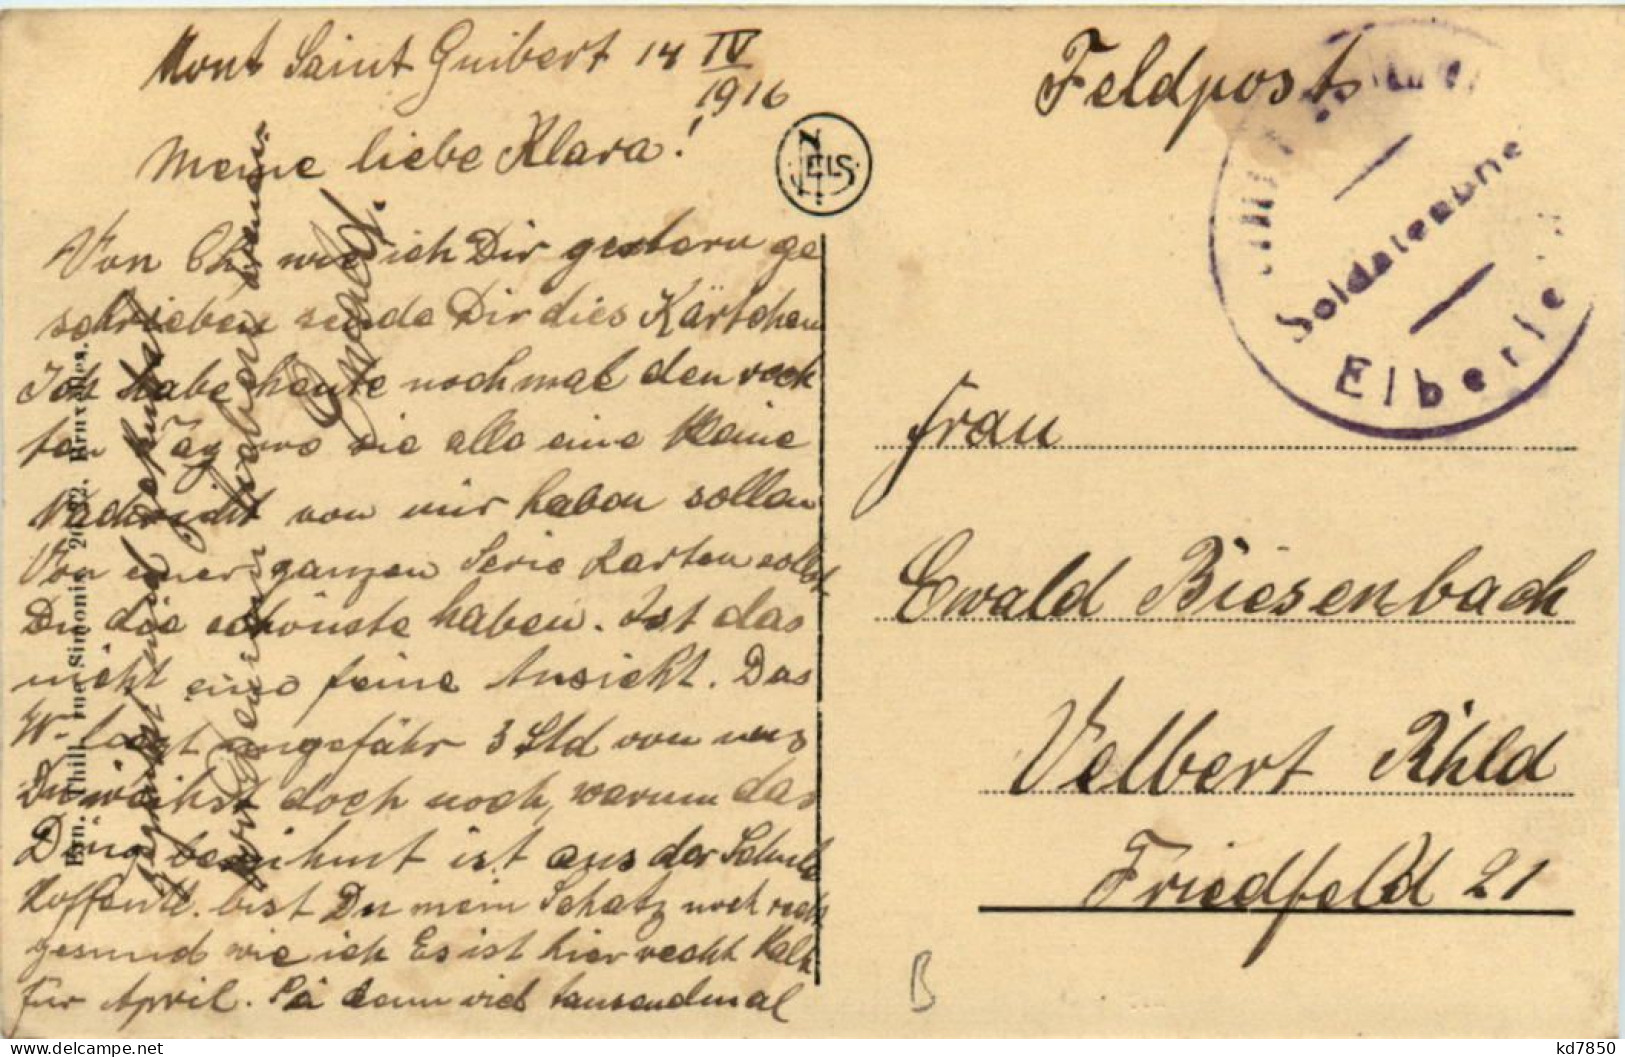 Mont Saint Guibert 14 IV
1916
Meine liebe Klara!
Von wie ich Dir gestern ge
schrieben sende Dir dies Kärtchen
Ich habe heute noch mal den rech
ten Tag wo sie alle eine kleine
Nachricht von mir haben sollen
Von einer ganzen Serie Karten sollst
Du die schönste haben. Ist das
nicht eine feine Ansicht. Das
W. liegt ungefähr 3 Std von uns
Du weihst doch noch, warum das
Ding berühmt ist aus der Schule
Hoffentl. bist Du mein Schatz noch recht
gesund wie ich Es ist hier recht kalt
für April. Sei denn viel tausendmal
gegrüßt und geküßt
von Deinem braven
Ewald.
Ern. Thill, rue Simonis, Bruxelles.
NELS
Feldpost
Soldatenbne
Elberfe
Frau
Ewald Biesenbach
Velbert Rhld
Friedfeld 21
B
kd7850